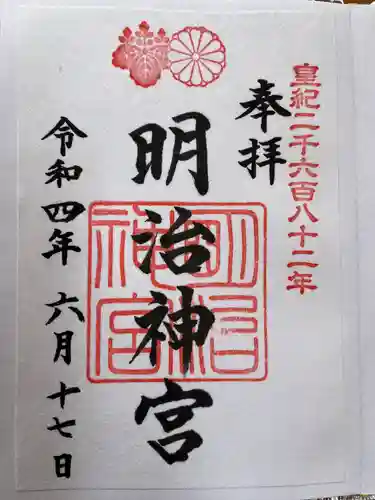 皇紀二千六百八十二年
奉拝
明治神宮
明治神宮
令和四年 六月 十七日